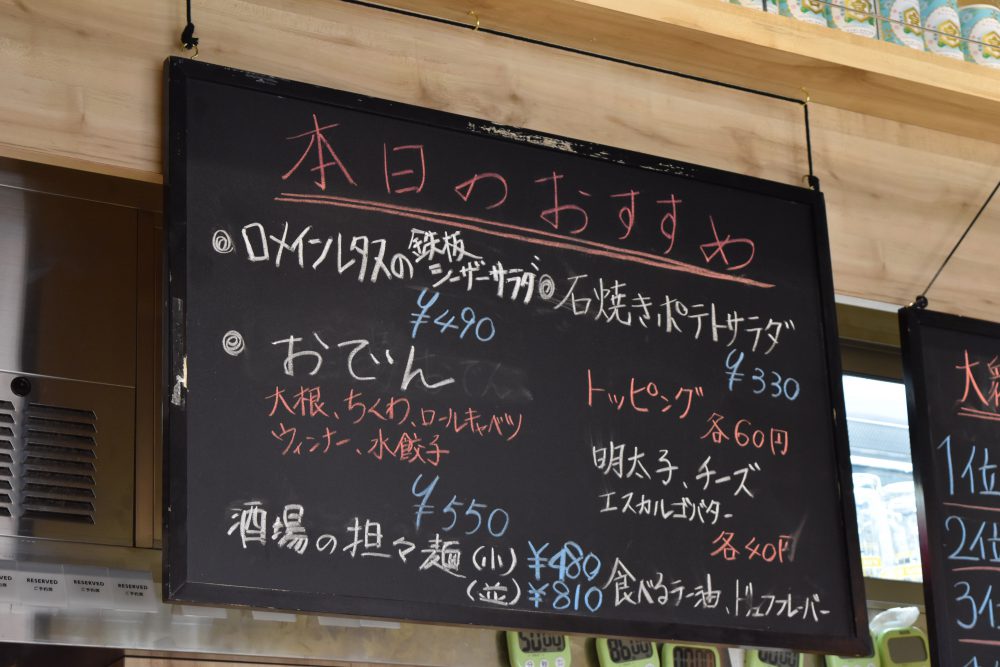 本日のおすすめ
◎ロメインレタスの鉄板
シーザーサラダ
¥490
◎おでん
大根、ちくわ、ロールキャベツ
ウィンナー、水餃子
¥550
酒場の担々麺(小)¥480
(並)¥810
◎石焼きポテトサラダ
¥330
トッピング
各60円
明太子、チーズ
エスカルゴバター
各40円
食べるラー油、トリュフフレーバー
1位
2位
3位
RESERVED
ご予約席
RESERVED
ご予約席
RESERVED
ご予約席